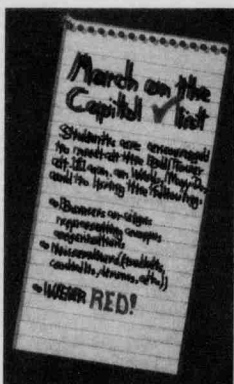 March on the
Capitol ✓ list
Students are encouraged
to meet at the Bell Tower
at 10 a.m. on Wed., March
and to bring the following:
• Banners or signs
representing campus
organizations
• Noisemakers (
cowbells, drums, etc.)
• WEAR RED!